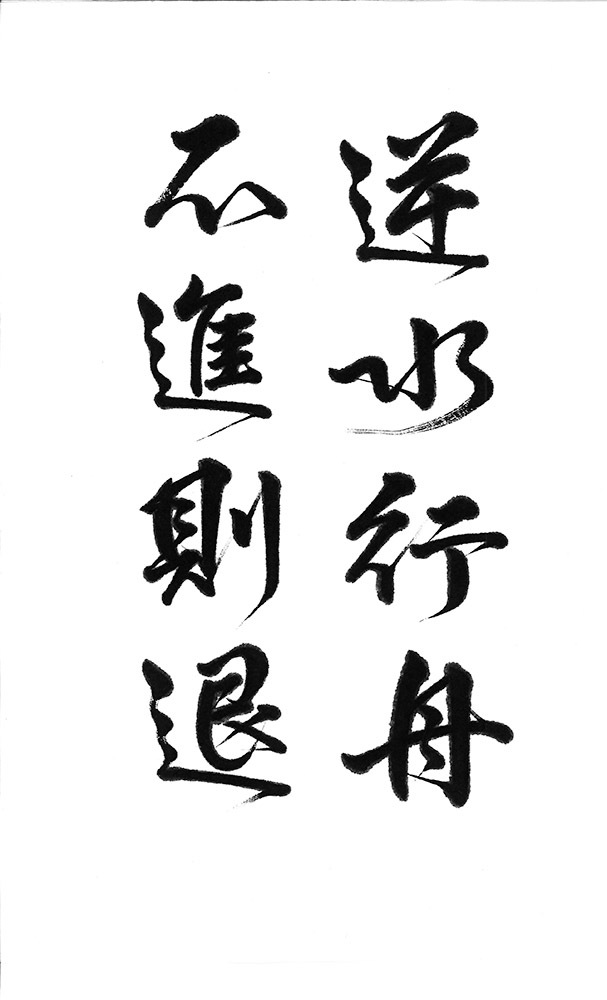 逆水行舟
不進則退